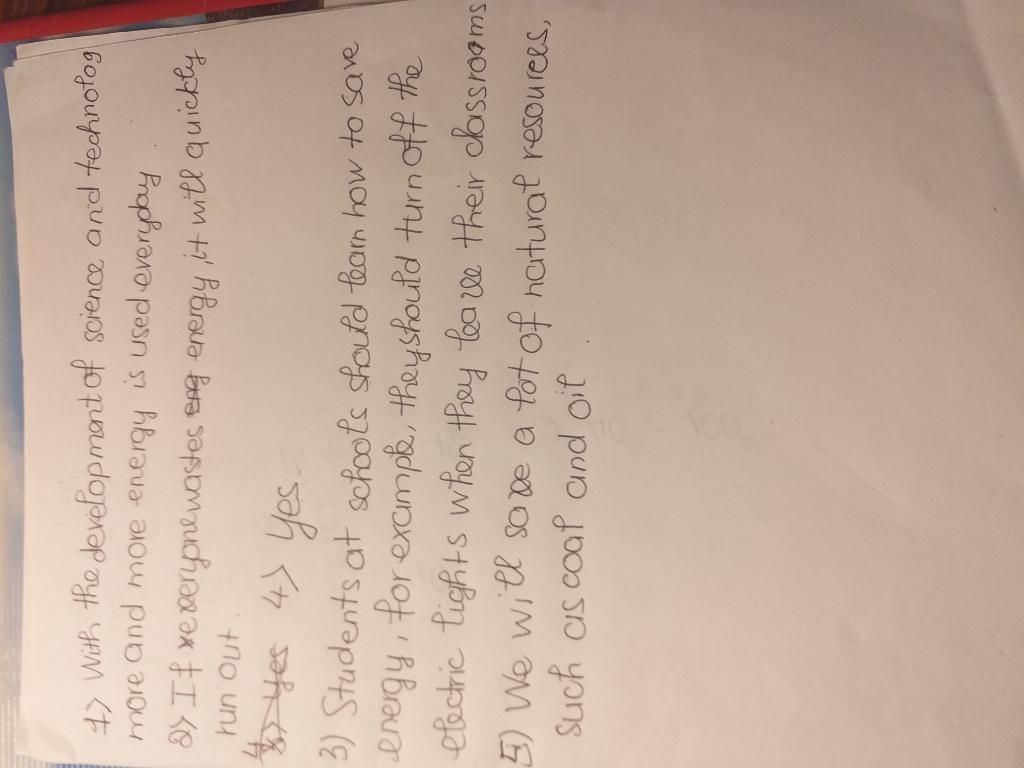 1) With the development of science and technolog
more and more energy is used everyday
2) If everyone wastes energy it will quickly
run out.
4) Yes.
3) Students at schools should learn how to save
energy, for example, they should turn off the
electric lights when they leave their classrooms
5) We will save a lot of natural resources,
such as coal and oil